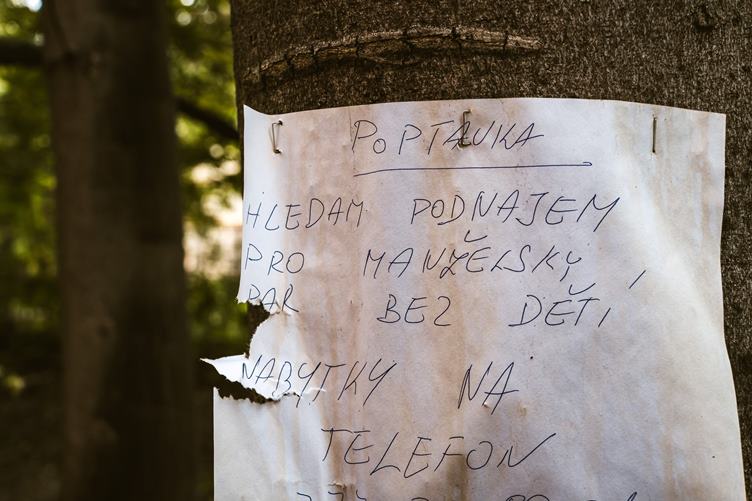 POPTÁVKA
HLEDAM PODNAJEM
PRO MANŽELSKÝ
PAR BEZ DĚTÍ,
NABYTKY NA
TELEFON